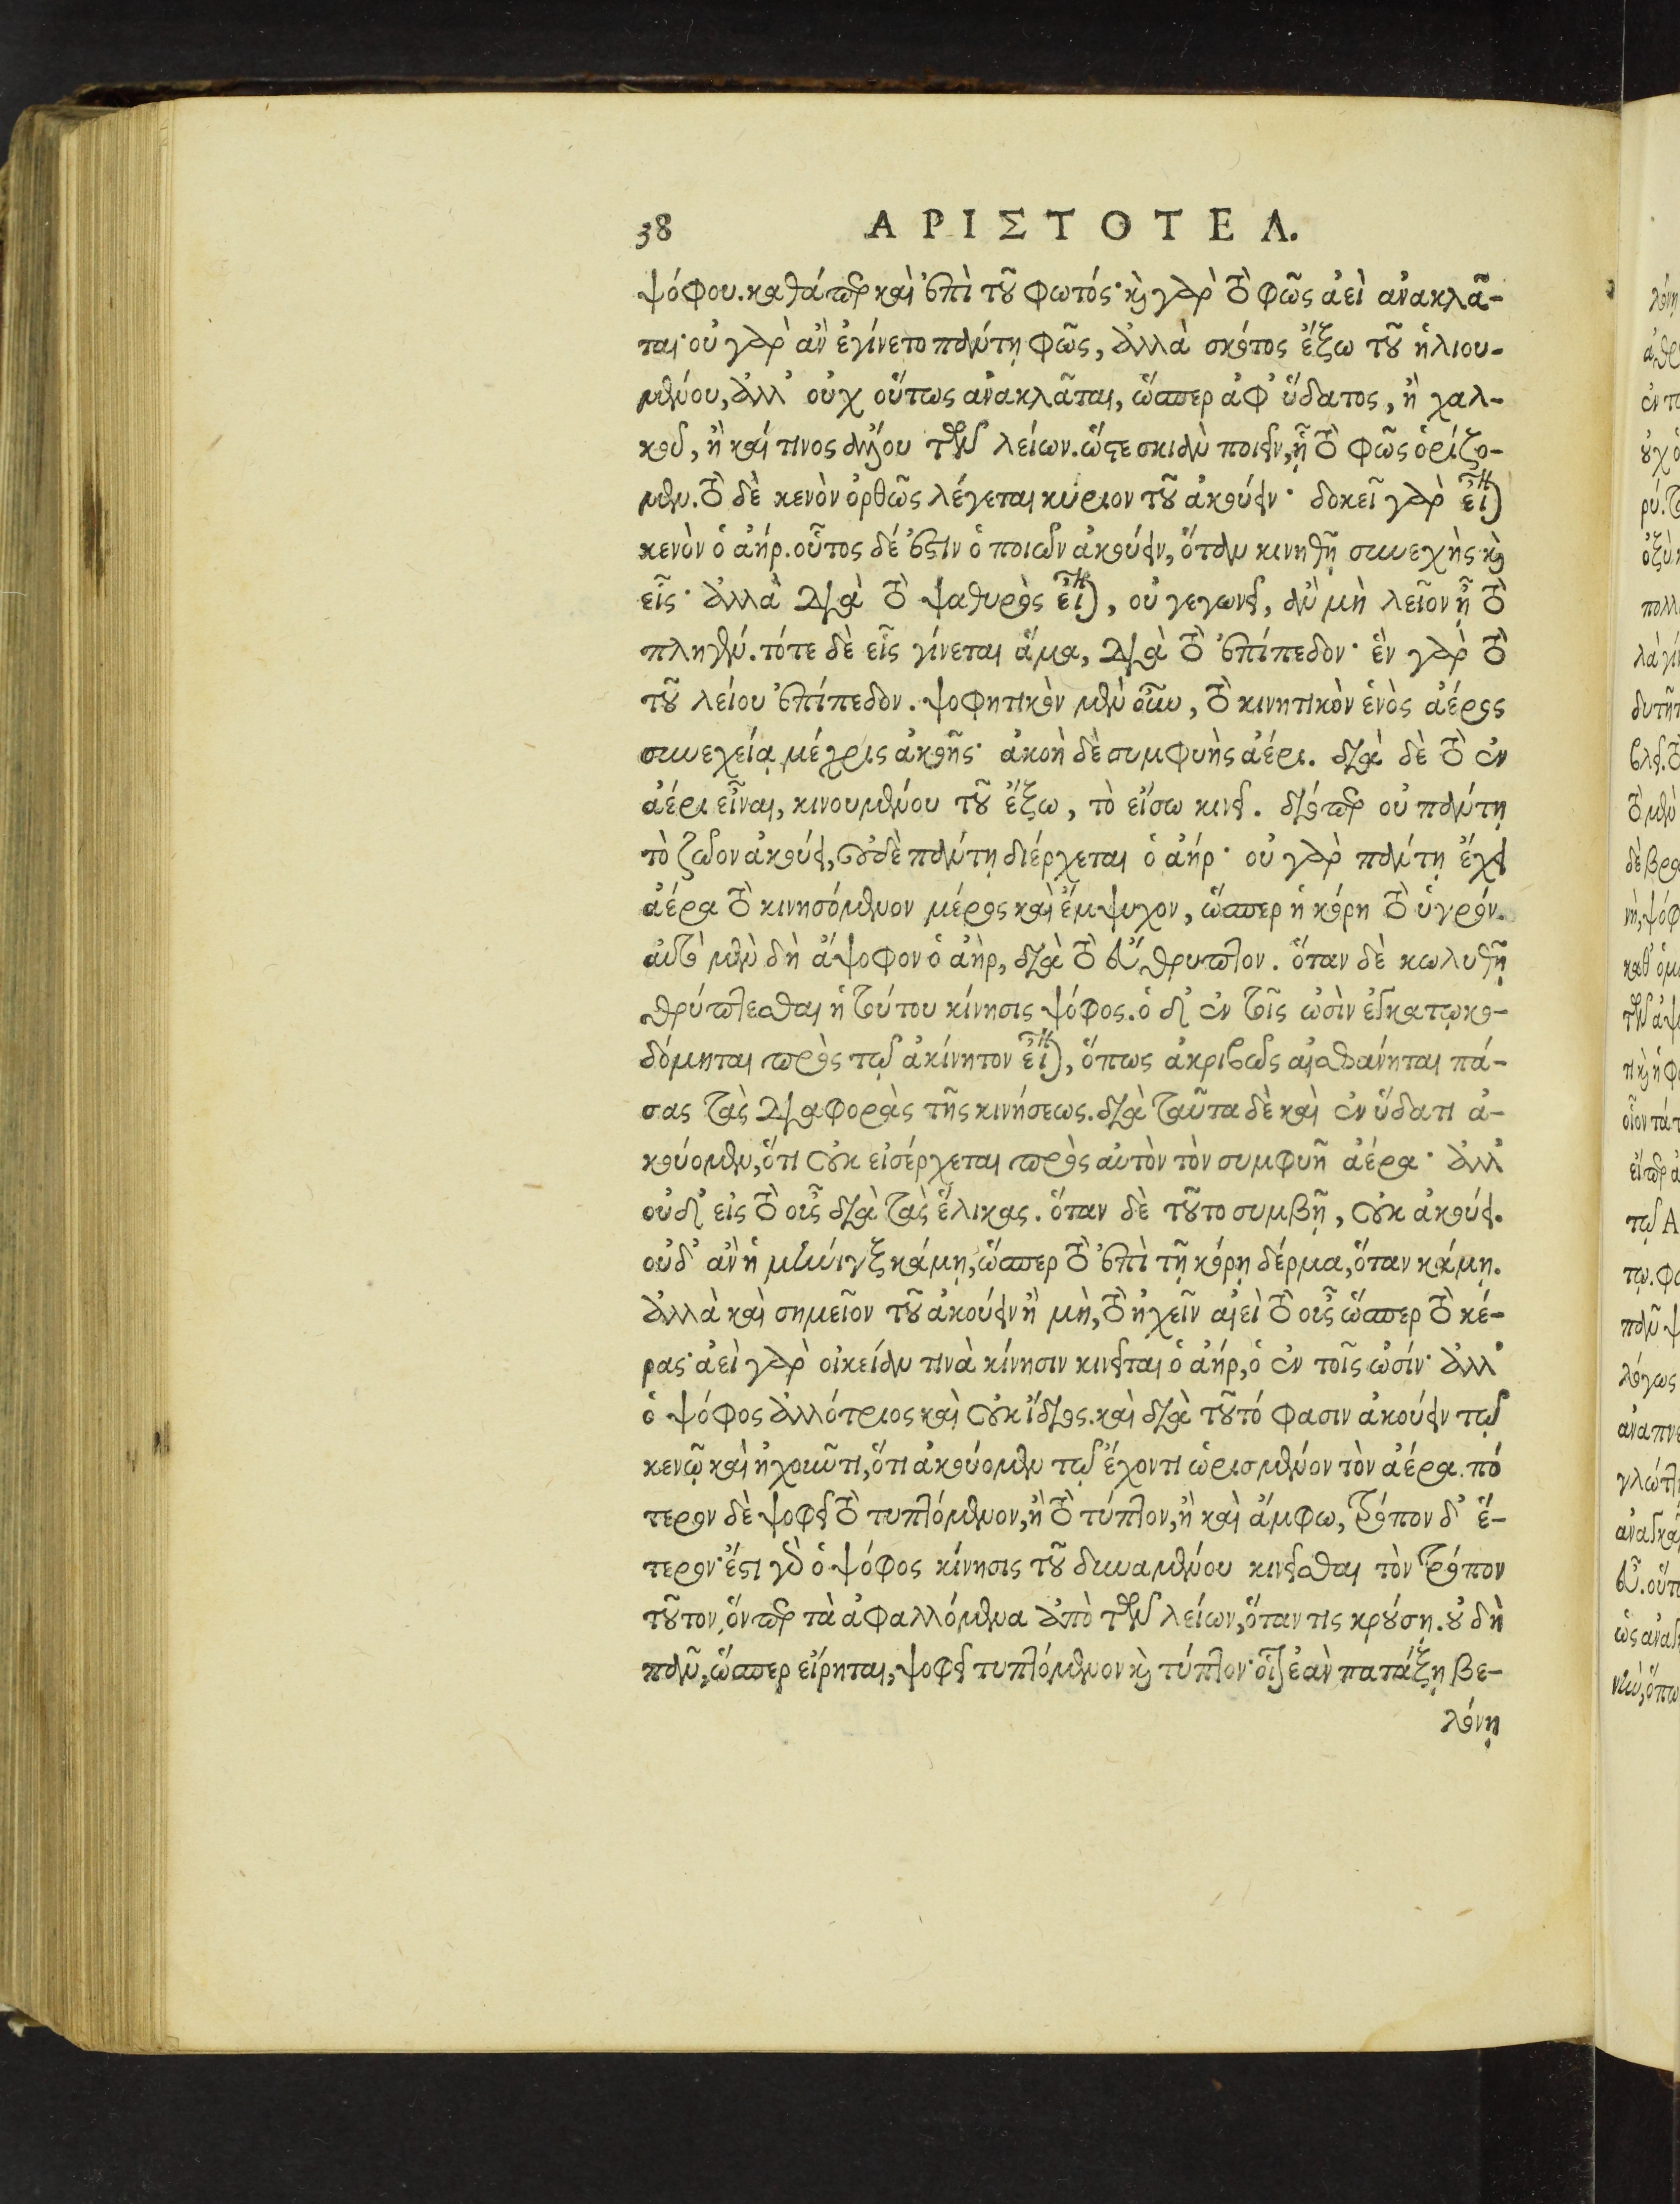 38 ΑΡΙΣΤΟΤΕΛ.
ψόφου. καθάπερ καὶ ἐπὶ τοῦ φωτός· καὶ γὰρ τὸ φῶς ἀεὶ ἀνακλᾶ-
ται· οὐ γὰρ ἂν ἐγίνετο πάντῃ φῶς, ἀλλὰ σκότος ἔξω τοῦ ἡλιου-
μένου, ἀλλ' οὐχ οὕτως ἀνακλᾶται, ὥσπερ ἀφ' ὕδατος, ἢ χαλ-
κοῦ, ἢ καί τινος ἄλλου τῶν λείων. ὥστε σκιὰν ποιεῖν, ᾗ τὸ φῶς ὁρίζο-
μεν. τὸ δὲ κενὸν ὀρθῶς λέγεται κύριον τοῦ ἀκούειν· δοκεῖ γὰρ εἶναι
κενὸν ὁ ἀήρ. οὗτος δέ ἐστιν ὁ ποιῶν ἀκούειν, ὅταν κινηθῇ συνεχὴς καὶ
εἷς· ἀλλὰ διὰ τὸ ψαθυρὸς εἶναι, οὐ γεγωνεῖ, ἂν μὴ λεῖον ᾖ τὸ
πληγέν. τότε δὲ εἷς γίνεται ἅμα, διὰ τὸ ἐπίπεδον· ἓν γὰρ τὸ
τοῦ λείου ἐπίπεδον. ψοφητικὸν μὲν οὖν, τὸ κινητικὸν ἑνὸς ἀέρος
συνεχείᾳ μέχρις ἀκοῆς· ἀκοὴ δὲ συμφυὴς ἀέρι. διὰ δὲ τὸ ἐν
ἀέρι εἶναι, κινουμένου τοῦ ἔξω, τὸ εἴσω κινεῖ. διόπερ οὐ πάντῃ
τὸ ζῶον ἀκούει, οὐδὲ πάντῃ διέρχεται ὁ ἀήρ· οὐ γὰρ πάντῃ ἔχει
ἀέρα τὸ κινησόμενον μέρος καὶ ἔμψυχον, ὥσπερ ἡ κόρη τὸ ὑγρόν.
αὐτὸ μὲν δὴ ἄψοφον ὁ ἀὴρ, διὰ τὸ εὔθρυπτον. ὅταν δὲ κωλυθῇ
θρύπτεσθαι ἡ τούτου κίνησις ψόφος. ὁ δ' ἐν τοῖς ὠσὶν ἐγκατῳκο-
δόμηται πρὸς τῷ ἀκίνητον εἶναι, ὅπως ἀκριβῶς αἰσθάνηται πά-
σας τὰς διαφορὰς τῆς κινήσεως. διὰ ταῦτα δὲ καὶ ἐν ὕδατι ἀ-
κούομεν, ὅτι οὐκ εἰσέρχεται πρὸς αὐτὸν τὸν συμφυῆ ἀέρα· ἀλλ'
οὐδ' εἰς τὸ οὖς διὰ τὰς ἕλικας. ὅταν δὲ τοῦτο συμβῇ, οὐκ ἀκούει.
οὐδ' ἂν ἡ μῆνιγξ κάμῃ, ὥσπερ τὸ ἐπὶ τῇ κόρῃ δέρμα, ὅταν κάμῃ.
ἀλλὰ καὶ σημεῖον τοῦ ἀκούειν ἢ μὴ, τὸ ἠχεῖν αἰεὶ τὸ οὖς ὥσπερ τὸ κέ-
ρας· ἀεὶ γὰρ οἰκείαν τινὰ κίνησιν κινεῖται ὁ ἀήρ, ὁ ἐν τοῖς ὠσίν· ἀλλ'
ὁ ψόφος ἀλλότριος καὶ οὐκ ἴδιος. καὶ διὰ τοῦτό φασιν ἀκούειν τῷ
κενῷ καὶ ἠχοῦντι, ὅτι ἀκούομεν τῷ ἔχοντι ὡρισμένον τὸν ἀέρα. πό
τερον δὲ ψοφεῖ τὸ τυπτόμενον, ἢ τὸ τύπτον, ἢ καὶ ἄμφω, τρόπον δ' ἕ-
τερον· ἔστι γὰρ ὁ ψόφος κίνησις τοῦ δυναμένου κινεῖσθαι τὸν τρόπον
τοῦτον, ὅνπερ τὰ ἀφαλλόμενα ἀπὸ τῶν λείων, ὅταν τις κρούσῃ. οὐ δὴ
πᾶν, ὥσπερ εἴρηται, ψοφεῖ τυπτόμενον καὶ τύπτον· οἷον ἐὰν πατάξῃ βε-
λόνη